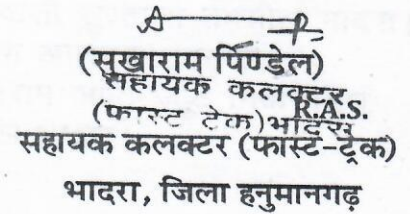 (सुखाराम पिण्डेल)
सहायक कलक्टर
R.A.S.
(फास्ट ट्रेक) भादरा
सहायक कलक्टर (फास्ट-ट्रेक)
भादरा, जिला हनुमानगढ़